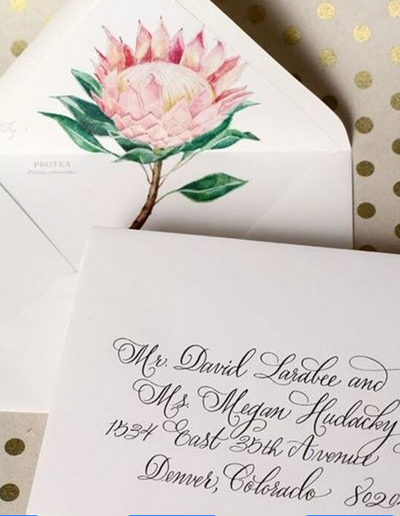 PROTEA
Mr. David Larabee and
Ms. Megan Hudacky
1534 East 35th Avenue
Denver, Colorado 8020